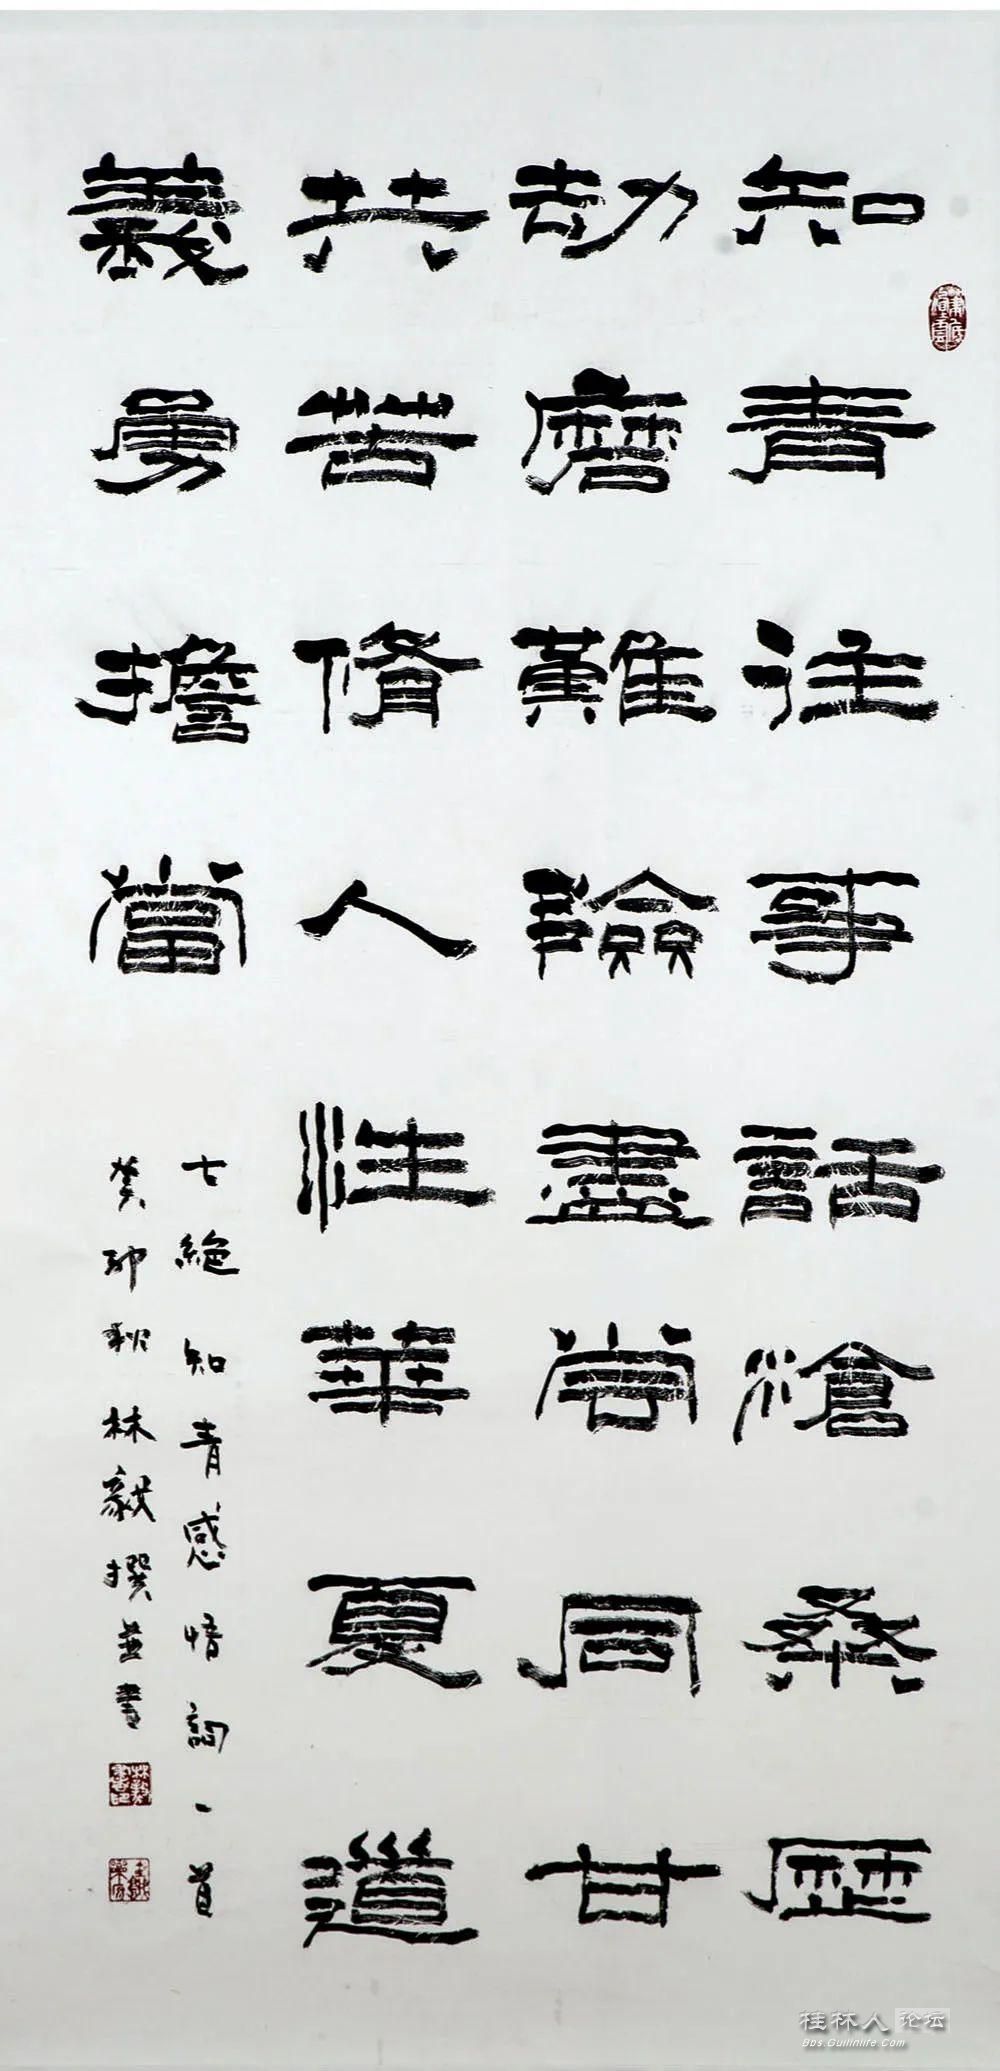 知青往事話滄桑歷
劫磨難險盡嘗同甘
共苦脩人性華夏道
義勇擔當
七絕知青感悟詞一首
癸卯秋林毅撰並書
桂林人论坛
Bbs.Guilinlife.com